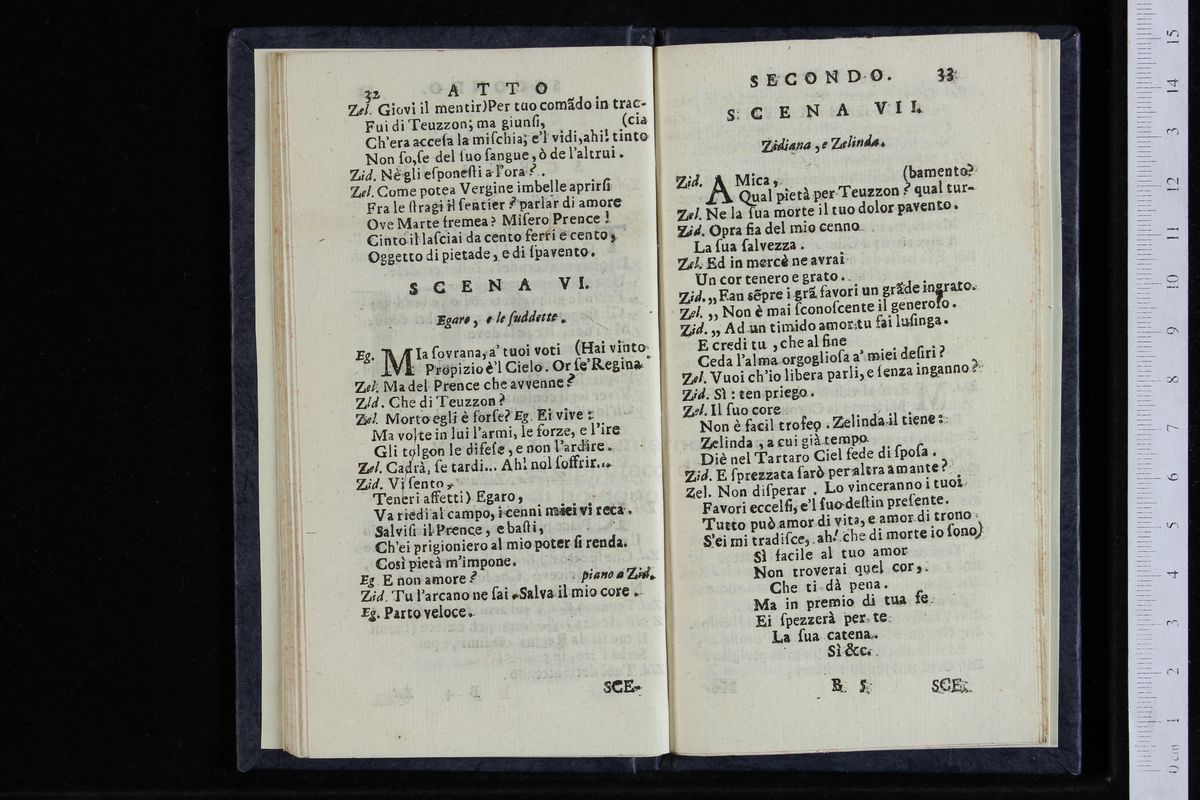 32 ATTO
Zel. Giovi il mentir)Per tuo comãdo in trac-
Fui di Teuzzon; ma giunſi, (cia
Ch'era acceſa la miſchia; e'l vidi,ahi! tinto
Non ſo,ſe del ſuo ſangue, ò de l'altrui.
Zid. Nè gli eſponeſti a l'ora?.
Zel. Come potea Vergine imbelle aprirſi
Fra le ſtragi il ſentier? parlar di amore
Ove Marte fremea? Miſero Prence!
Cinto il laſciai da cento ferri e cento,
Oggetto di pietade, e di ſpavento.
SCENA VI.
Egaro, e le ſuddette.
Eg. MIa ſovrana, a' tuoi voti (Hai vinto.
Propizio è'l Cielo. Or ſe' Regina
Zel. Ma del Prence che avvenne?
Zid. Che di Teuzzon?
Zel. Morto egli è forſe? Eg. Ei vive:
Ma volte in lui l'armi, le forze, e l'ire
Gli tolgon le difeſe, e non l'ardire.
Zel. Cadrà, ſe tardi... Ah! nol ſoffrir...
Zid. Vi ſento,
Teneri affetti) Egaro,
Va riedi al campo, i cenni miei vi reca.
Salviſi il Prence, e baſti,
Ch'ei prigioniero al mio poter ſi renda.
Così pietà m'impone.
Eg E non amore? piano a Zid.
Zid. Tu l'arcano ne ſai. Salva il mio core.
Eg. Parto veloce.
SCE-
SECONDO. 33
SCENA VII.
Zidiana, e Zelinda.
Zid. AMica, (bamento?
Qual pietà per Teuzzon? qual tur-
Zel. Ne la ſua morte il tuo dolor pavento.
Zid. Opra ſia del mio cenno
La ſua ſalvezza.
Zel. Ed in mercè ne avrai
Un cor tenero e grato.
Zid. „ Fan sẽpre i grã favori un grãde ingrato.
Zel. „ Non è mai ſconoſcente il generoſo.
Zid. „ Ad un timido amor tu fai luſinga.
E credi tu, che al fine
Ceda l'alma orgoglioſa a' miei deſiri?
Zel. Vuoi ch'io libera parli, e ſenza inganno?
Zid. Sì: ten priego.
Zel. Il ſuo core
Non è facil trofeo. Zelinda il tiene:
Zelinda, a cui già tempo
Diè nel Tartaro Ciel fede di ſpoſa.
Zid. E ſprezzata ſarò per altra amante?
Zel. Non diſperar. Lo vinceranno i tuoi
Favori eccelſi, e'l ſuo deſtin preſente.
Tutto può amor di vita, e amor di trono
S'ei mi tradiſce, ah! che di morte io ſono)
Sì facile al tuo amor
Non troverai quel cor,
Che ti dà pena.
Ma in premio di tua fe
Ei ſpezzerà per te
La ſua catena.
Sì &c.
B 5 SCE-
0 cm 1 2 3 4 5 6 7 8 9 10 11 12 13 14 15